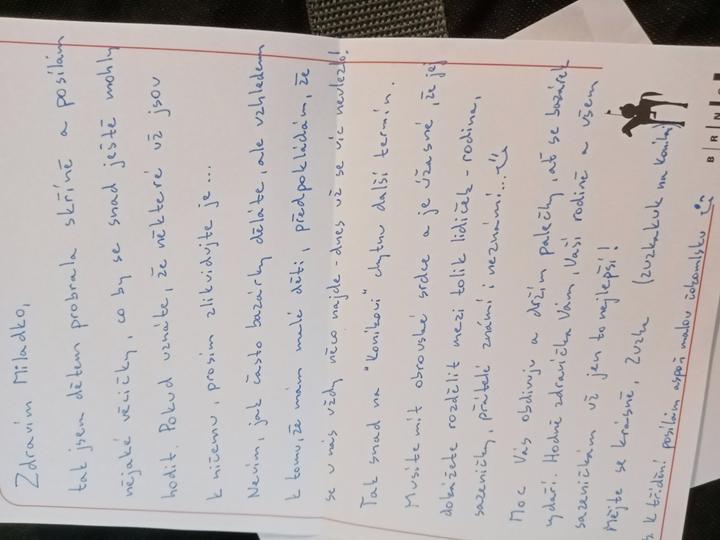 Zdravím Miladko,
tak jsem dětem probrala skříně a posílám
nějaké věcičky, co by se snad ještě mohly
hodit. Pokud uznáte, že některé už jsou
k ničemu, prosím zlikvidujte je...
Nevím, jak často bazárky děláte, ale vzhledem
k tomu, že mám malé děti, předpokládám, že
se u nás vždy něco najde - dnes už se víc nevlezlo!
Tak snad na "Koníkovi" chytnu další termín.
Musíte mít obrovské srdce a je úžasné, že jej
dokážete rozdělit mezi tolik lidiček - rodina,
sazeničky, přátelé známí i neznámí...
Moc Vás obdivuju a držím palečky, ať se bazárek
vydaří. Hodně zdravíčka Vám, Vaší rodině a všem
sazeničkám už jen to nejlepší!
Mějte se krásně, Zuzka (zuzkakuk na Koníku)
k třídění posílám aspoň malou čokomlsku
BRN